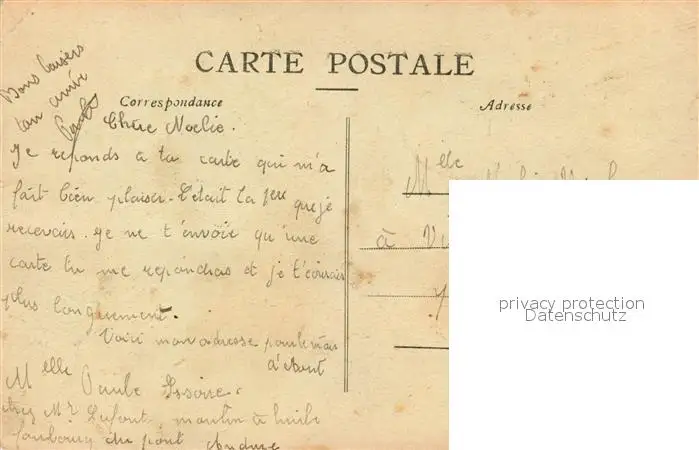 CARTE POSTALE
Correspondance
Adresse
Bons baisers
ton amie
Paule
Chère Noelie.
Je reponds à ta carte qui m'a
fait bien plaisir. C'était la 1ere que je
recevais. Je ne t'envoie qu'une
carte tu me repondras et je t'écrirais
plus longuement.
Voici mon adresse pour le mois
d'Aout
Melle Paule Issoire.
chez Mr Lafont, moulin à huile
faubourg du pont Anduze
Melle
à Vi
privacy protection
Datenschutz